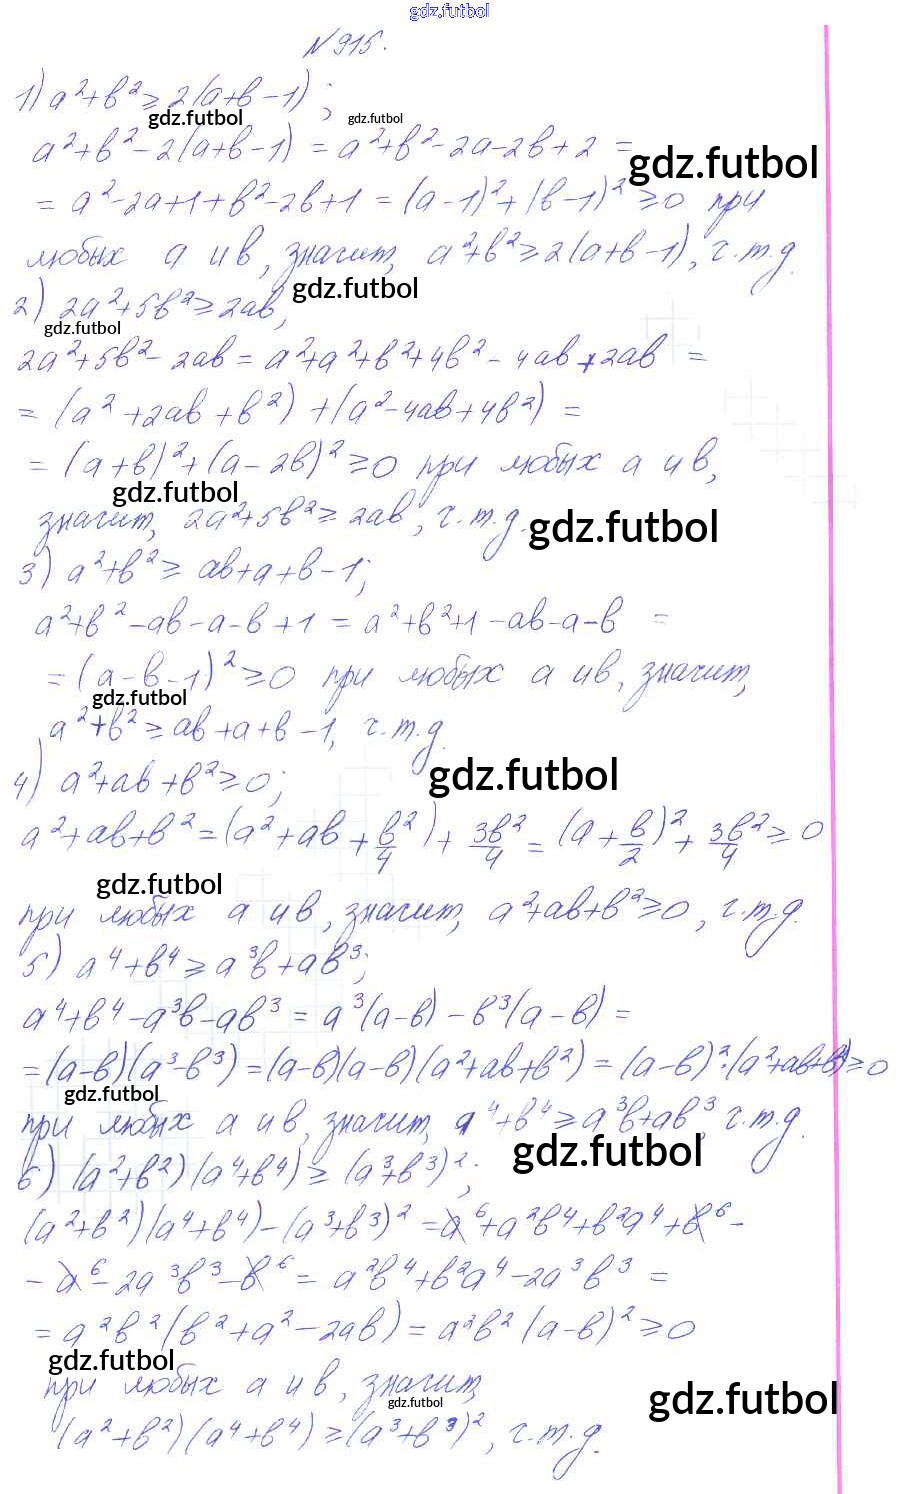 gdz.futbol
№915.
1) a²+b² ≥ 2(a+b-1);
gdz.futbol gdz.futbol
a²+b²-2(a+b-1) = a²+b²-2a-2b+2 =
gdz.futbol
= a²-2a+1+b²-2b+1 = (a-1)²+(b-1)² ≥0 при
любых a и b, значит, a²+b² ≥ 2(a+b-1), ч.т.д.
gdz.futbol
2) 2a²+5b² ≥ 2ab;
gdz.futbol
2a²+5b²-2ab = a²+a²+b²+4b²-4ab+2ab =
= (a²+2ab+b²)+(a²-4ab+4b²) =
= (a+b)²+(a-2b)² ≥0 при любых a и b,
gdz.futbol
значит, 2a²+5b² ≥ 2ab, ч.т.д.
gdz.futbol
3) a²+b² ≥ ab+a+b-1;
a²+b²-ab-a-b+1 = a²+b²+1-ab-a-b =
= (a-b-1)² ≥0 при любых a и b, значит,
gdz.futbol
a²+b² ≥ ab+a+b-1, ч.т.д.
gdz.futbol
4) a²+ab+b² ≥0;
a²+ab+b² = (a²+ab+b²/4)+3b²/4 = (a+b/2)²+3b²/4 ≥ 0
gdz.futbol
при любых a и b, значит, a²+ab+b² ≥0, ч.т.д.
5) a⁴+b⁴ ≥ a³b+ab³;
a⁴+b⁴-a³b-ab³ = a³(a-b)-b³(a-b) =
= (a-b)(a³-b³) = (a-b)(a-b)(a²+ab+b²) = (a-b)²·(a²+ab+b²) ≥0
gdz.futbol
при любых a и b, значит, a⁴+b⁴ ≥ a³b+ab³, ч.т.д.
gdz.futbol
6) (a²+b²)(a⁴+b⁴) ≥ (a³+b³)²;
(a²+b²)(a⁴+b⁴)-(a³+b³)² = a⁶+a²b⁴+b²a⁴+b⁶-
-a⁶-2a³b³-b⁶ = a²b⁴+b²a⁴-2a³b³ =
= a²b²(b²+a²-2ab) = a²b²(a-b)² ≥0
gdz.futbol
при любых a и b, значит,
gdz.futbol gdz.futbol
(a²+b²)(a⁴+b⁴) ≥(a³+b³)², ч.т.д.